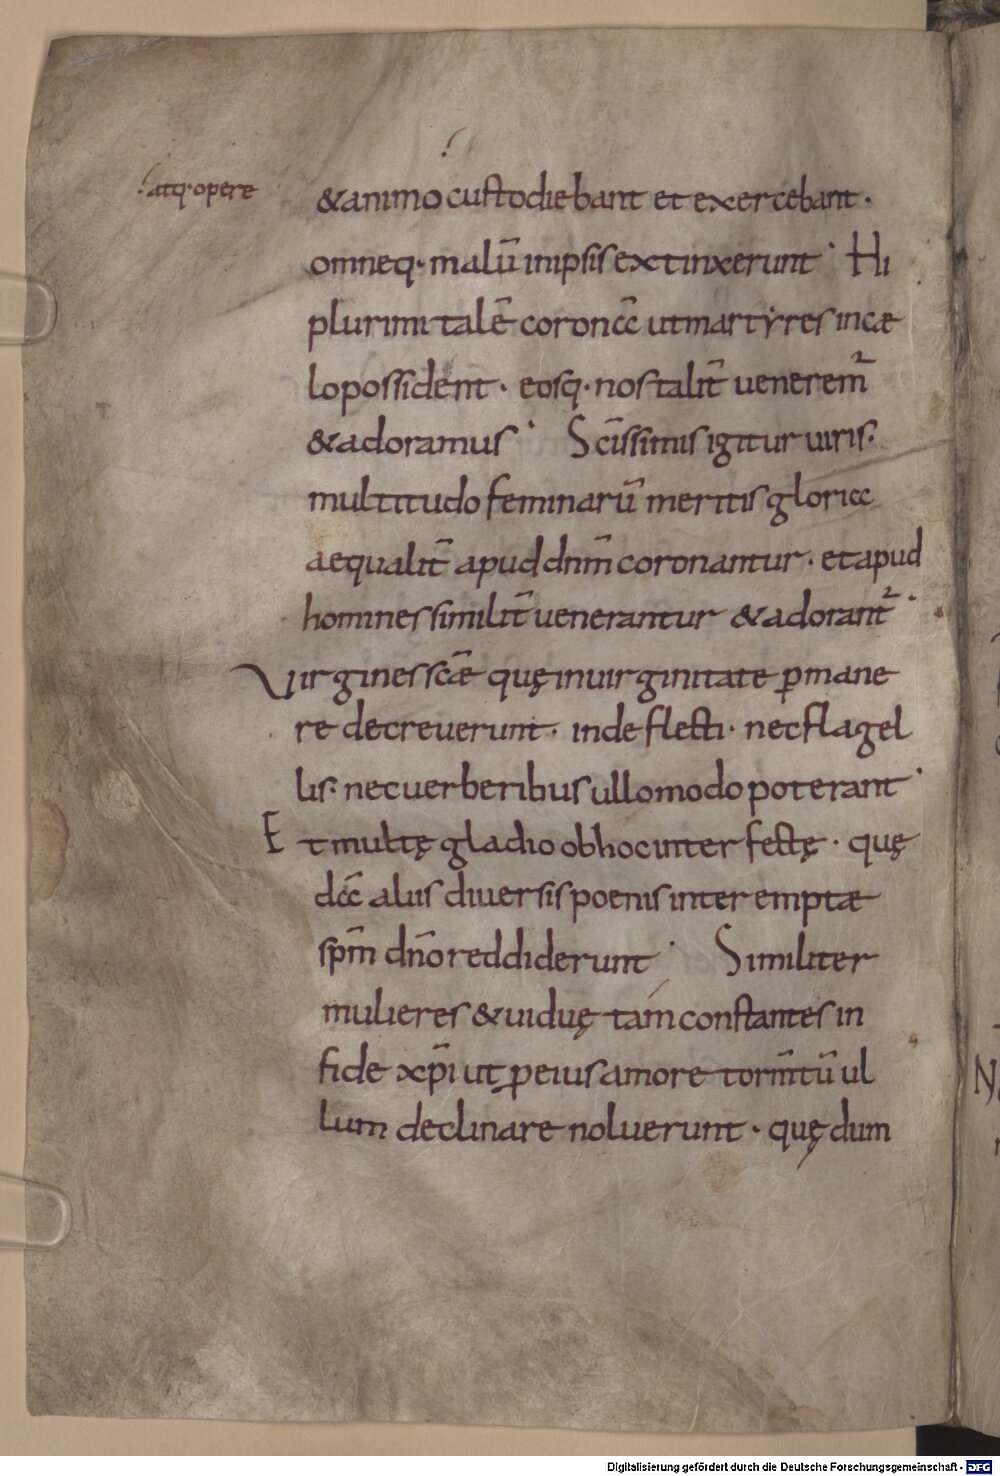 atq· opere
& animo custodiebant et exercebant·
omneq· malū in ipsis extinxerunt· Hi
plurimi talē coronā ut martyres in cæ
lo possident· eosq· nos talit̄ uenerem̄
& adoramus· Sc̄issimis igitur uiris·
multitudo feminarū meritis gloriae
aequalit̄ apud dnm̄ coronantur· et apud
homines similit̄ uenerantur & adorant̄·
Virgines sc̄æ quę in uirginitate ꝑmane
re decreuerunt· inde flecti· nec flagel
lis· nec uerberibus ullo modo poterant·
Et multę gladio ob hoc interfectę· quę
dā aliis diuersis poenis interemptæ
spm̄ dn̄o reddiderunt· Similiter
mulieres & uiduę tam constantes in
fide xp̄i ut ꝑ eius amore torm̄tū ul
lum declinare noluerunt· quę dum
Digitalisierung gefördert durch die Deutsche Forschungsgemeinschaft - DFG